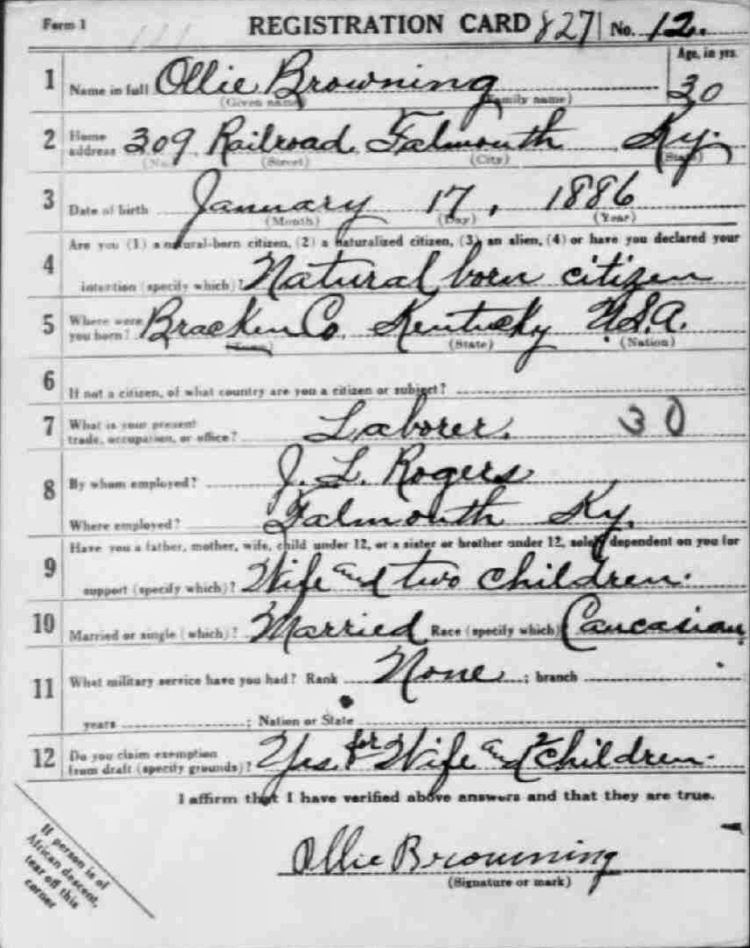 Form 1 REGISTRATION CARD 827 No. 12.
1 Name in full Ollie Browning Age, in yrs. 30
(Given name) (Family name)
2 Home address 309 Railroad Falmouth Ky.
(No.) (Street) (City) (State)
3 Date of birth January 17, 1886
(Month) (Day) (Year)
Are you (1) a natural-born citizen, (2) a naturalized citizen, (3) an alien, (4) or have you declared your
4 intention (specify which)? Natural born citizen
5 Where were you born? Bracken Co. Kentucky U.S.A.
(Town) (State) (Nation)
6 If not a citizen, of what country are you a citizen or subject?
7 What is your present trade, occupation, or office? Laborer. 30
8 By whom employed? J. L. Rogers
Where employed? Falmouth Ky.
Have you a father, mother, wife, child under 12, or a sister or brother under 12, solely dependent on you for
9 support (specify which)? Wife and two children.
10 Married or single (which)? Married Race (specify which) Caucasian
11 What military service have you had? Rank None ; branch
years ; Nation or State
12 Do you claim exemption from draft (specify grounds)? Yes for Wife and 2 children.
I affirm that I have verified above answers and that they are true.
If person is of
African descent,
tear off this
corner
Ollie Browning
(Signature or mark)